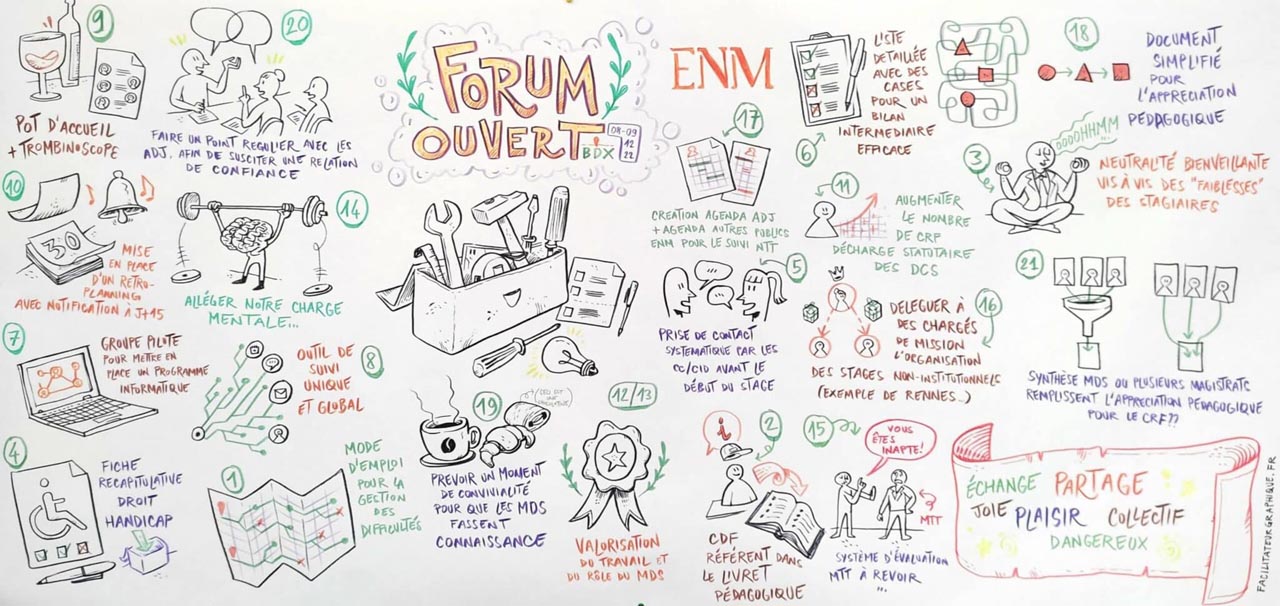 FORUM
OUVERT
BDX
08-09
12
22
ENM
9
POT D'ACCUEIL
+ TROMBINOSCOPE
20
FAIRE UN POINT REGULIER AVEC LES
ADJ. AFIN DE SUSCITER UNE RELATION
DE CONFIANCE
10
30
MISE
EN PLACE
D'UN RETRO-
PLANNING
AVEC NOTIFICATION À J+15
14
ALLÉGER NOTRE CHARGE
MENTALE...
7
GROUPE PILOTE
POUR METTRE EN
PLACE UN PROGRAMME
INFORMATIQUE
8
OUTIL DE
SUIVI
UNIQUE
ET GLOBAL
4
FICHE
RECAPITULATIVE
DROIT
HANDICAP
1
MODE
D'EMPLOI
POUR LA
GESTION
DES
DIFFICULTÉS
19
PREVOIR UN MOMENT
DE CONVIVIALITÉ
POUR QUE LES MDS
FASSENT
CONNAISSANCE
12/13
VALORISATION
DU TRAVAIL ET
DU RÔLE DU MDS
17
CREATION AGENDA ADJ
+ AGENDA AUTRES PUBLICS
ENM POUR LE SUIVI NTT
6
LISTE
DETAILLÉE
AVEC DES
CASES
POUR UN
BILAN
INTERMEDIAIRE
EFFICACE
18
DOCUMENT
SIMPLIFIÉ
POUR
L'APPRECIATION
PÉDAGOGIQUE
11
AUGMENTER
LE NOMBRE
DE CRF
DÉCHARGE STATUTAIRE
DES DCS
3
OOOOHHMM
NEUTRALITÉ BIENVEILLANTE
VIS À VIS DES "FAIBLESSES"
DES STAGIAIRES
5
PRISE DE CONTACT
SYSTEMATIQUE PAR LES
CC/CID AVANT LE
DÉBUT DU STAGE
16
DELEGUER À
DES CHARGÉS
DE MISSION
L'ORGANISATION
DES STAGES NON-INSTITUTIONNELS
(EXEMPLE DE RENNES...)
21
SYNTHÈSE MDS OU PLUSIEURS MAGISTRATS
REMPLISSENT L'APPRECIATION PÉDAGOGIQUE
POUR LE CRF??
2
i
CDF
RÉFÉRENT DANS
LE LIVRET
PÉDAGOGIQUE
15
VOUS
ÊTES
INAPTE!
MTT
SYSTÈME D'ÉVALUATION
MTT À REVOIR
...
ÉCHANGE PARTAGE
JOIE PLAISIR COLLECTIF
DANGEREUX
FACILITATEURGRAPHIQUE.FR